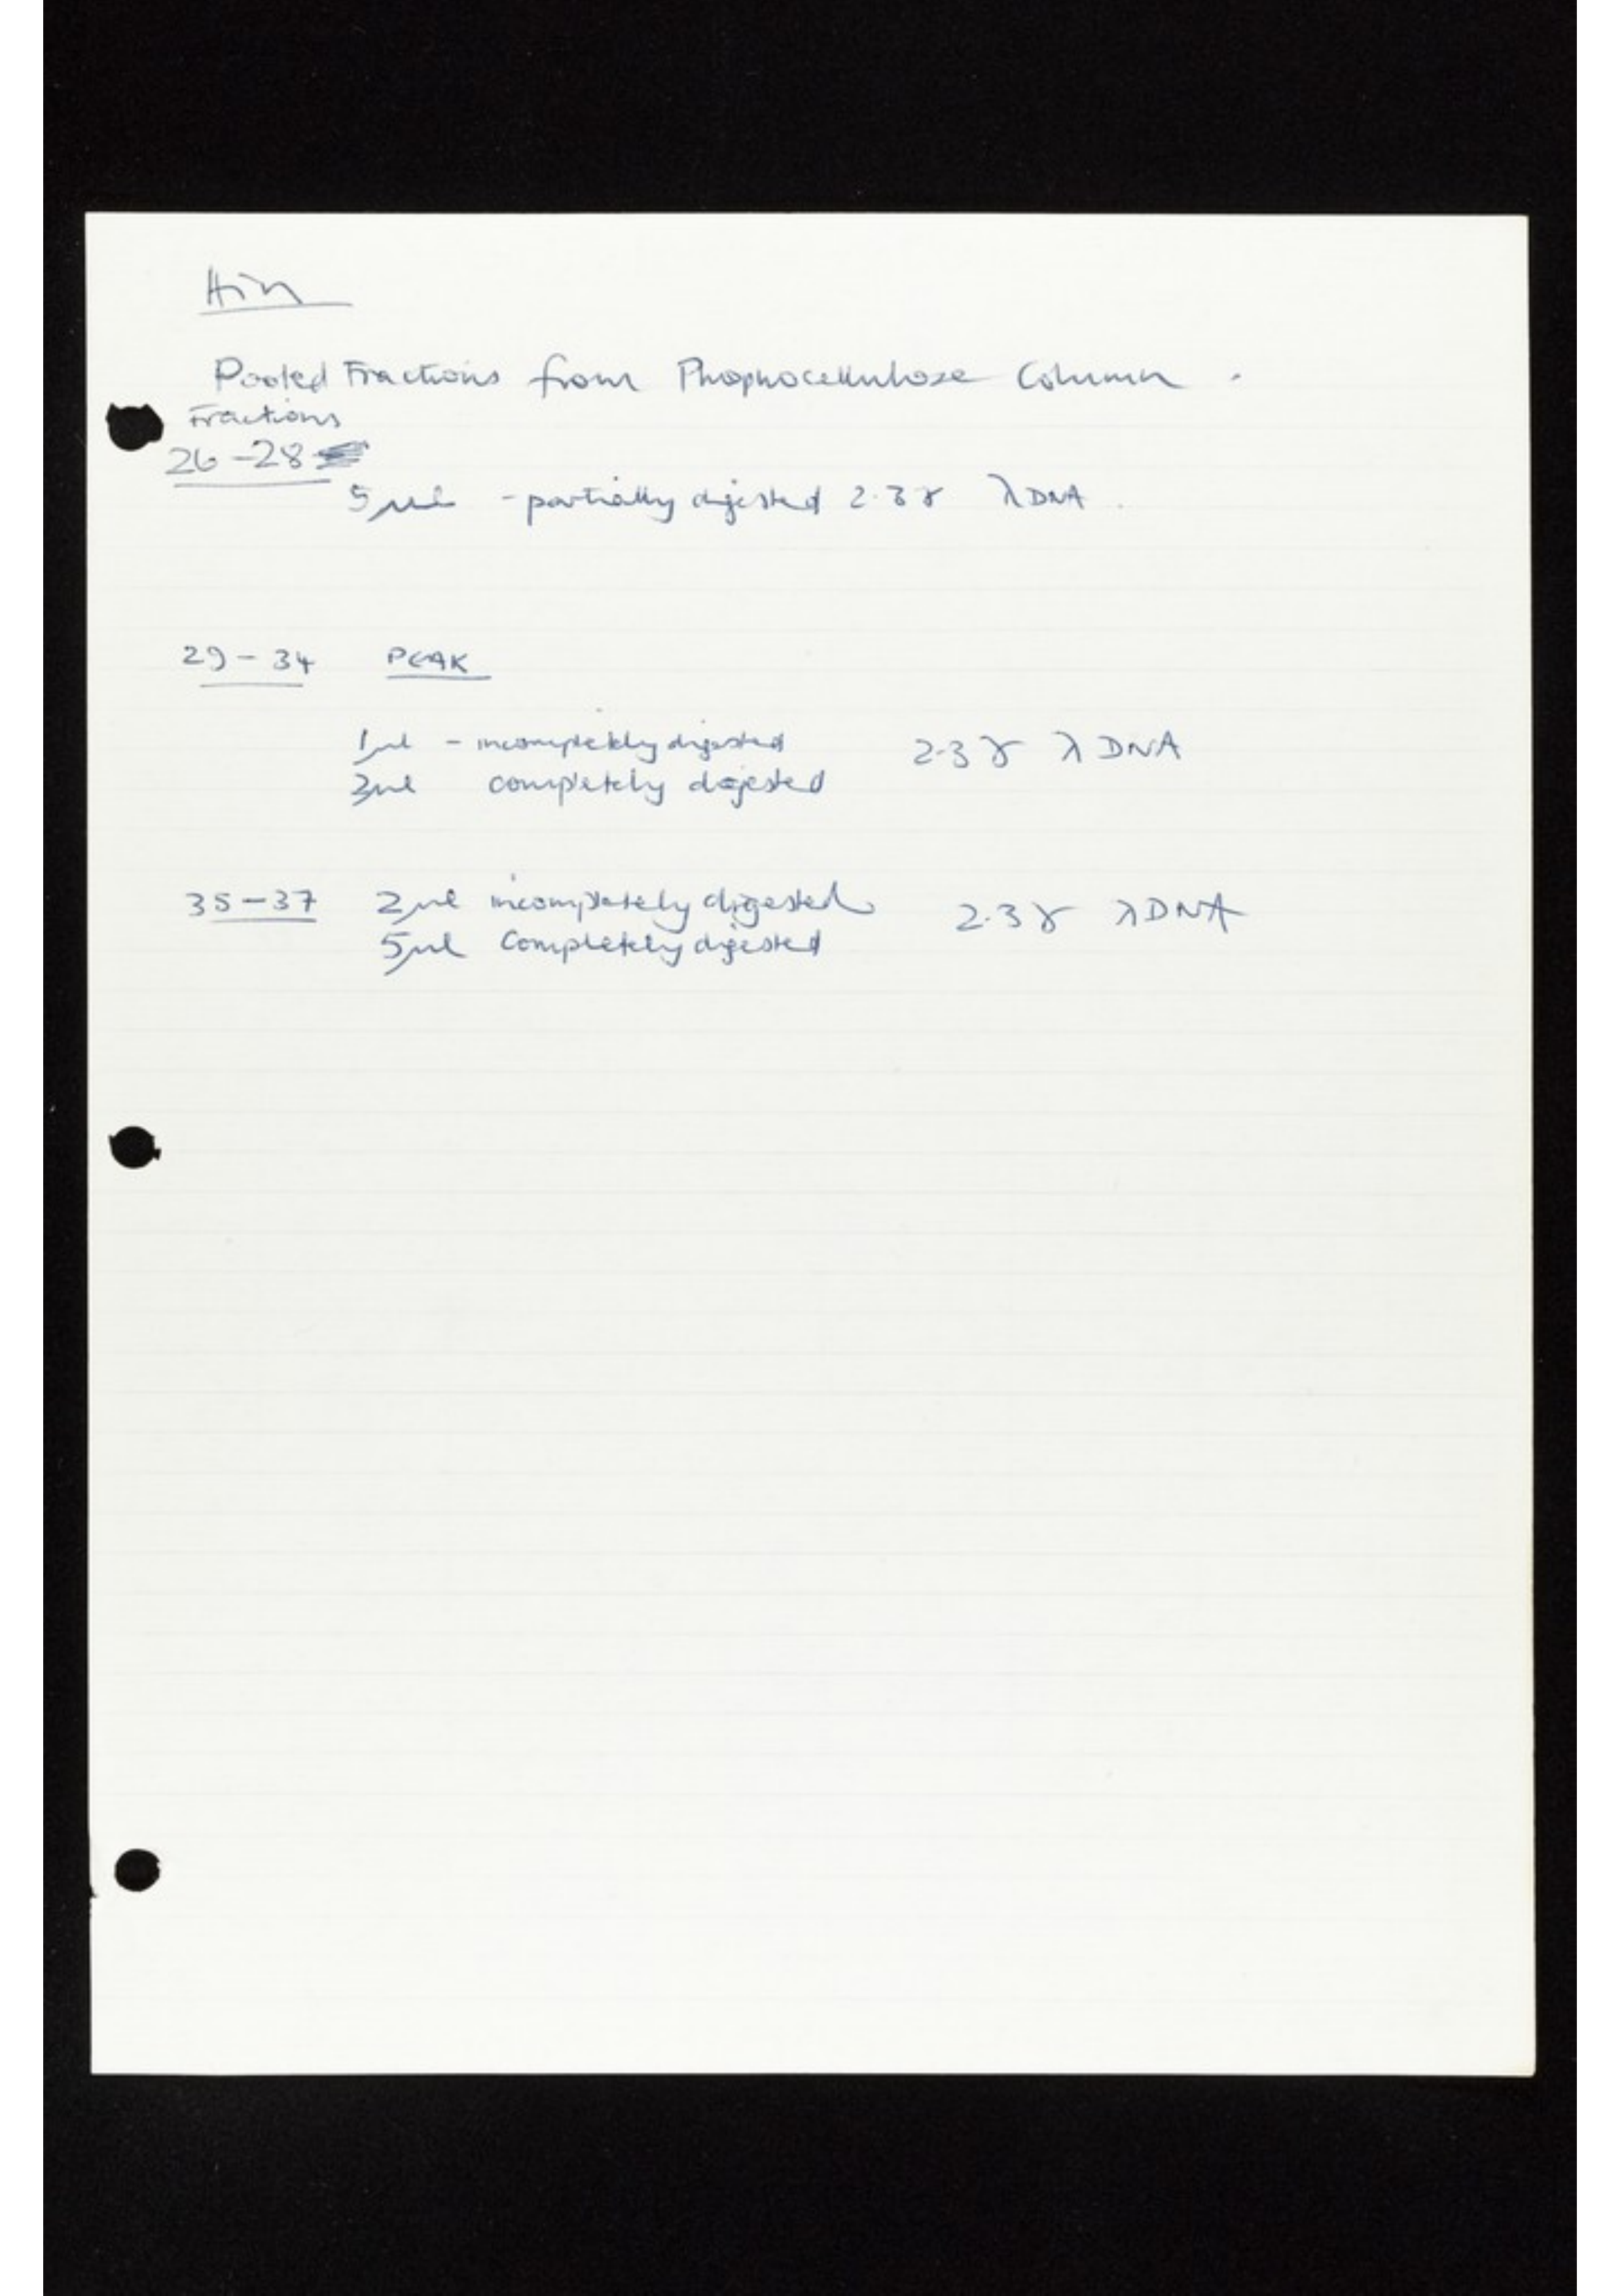 Hin
Pooled Fractions from Phophocellulose Column.
Fractions
26-28
5μl - partially digested 2.3γ λDNA.
29-34 PEAK
1μl - incompletely digested 2.3γ λDNA
3μl completely digested
35-37 2μl incompletely digested 2.3γ λDNA
5μl Completely digested